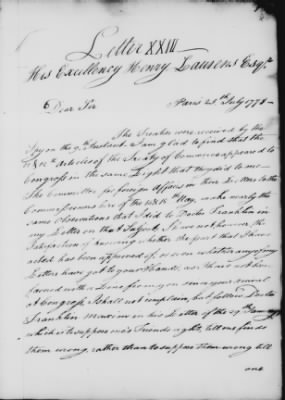 Letter XXIV
His Excellency Henry Laurens Esqr.
Dear Sir Paris 25th July 1778
The Treaties were received by the
Spy on the 9th Instant. I am glad to find that the
11 & 12th Articles of the Treaty of Commerce appeared to
Congress in the same Light that they did to me.
The Committee for foreign Affairs in their Letter to the
Commissioners here of the 14 & 15th May, make nearly the
same observations that I did to Doctor Franklin in
my Letter on that Subject. I have not however the
Satisfaction of knowing whether the part that I have
acted has been approved of, or even whether any of my
Letters have got to your Hands, nor have I not been
favored with a Line from you since your arrival
at Congress. I shall not complain, but follow Doctor
Franklin's maxim in his Letter of the 29th January
which is to suppose one's Friends right, till one finds
them wrong, rather than to suppose them wrong till
one